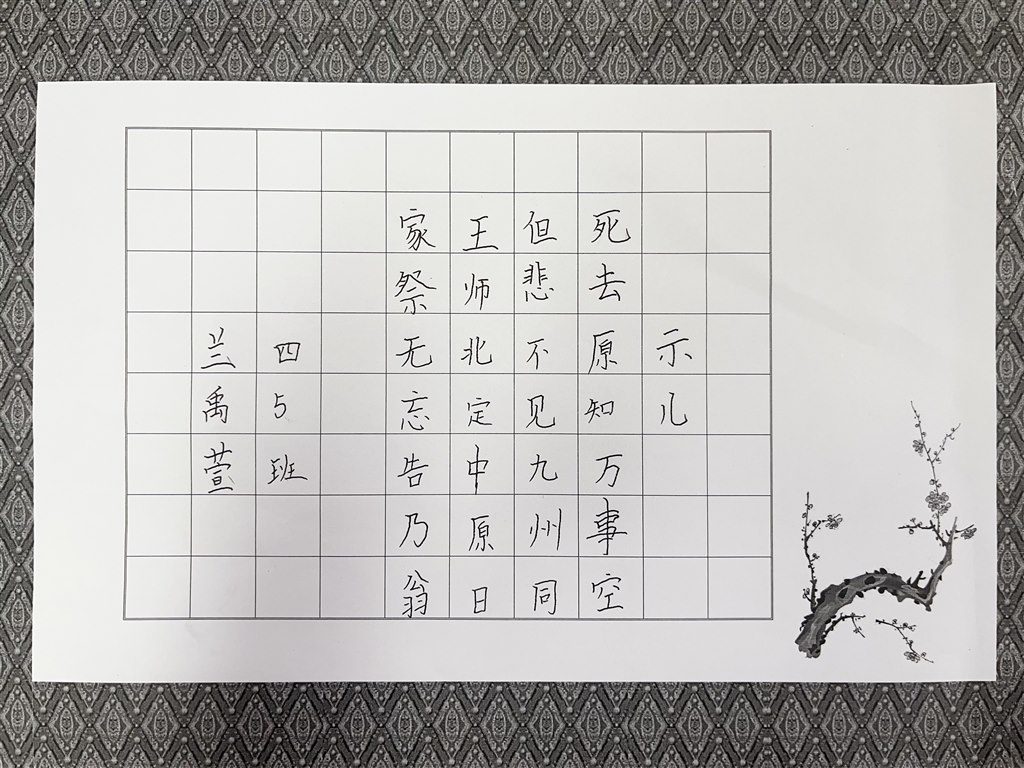 示儿
死去原知万事空
但悲不见九州同
王师北定中原日
家祭无忘告乃翁
四5班
兰禹萱